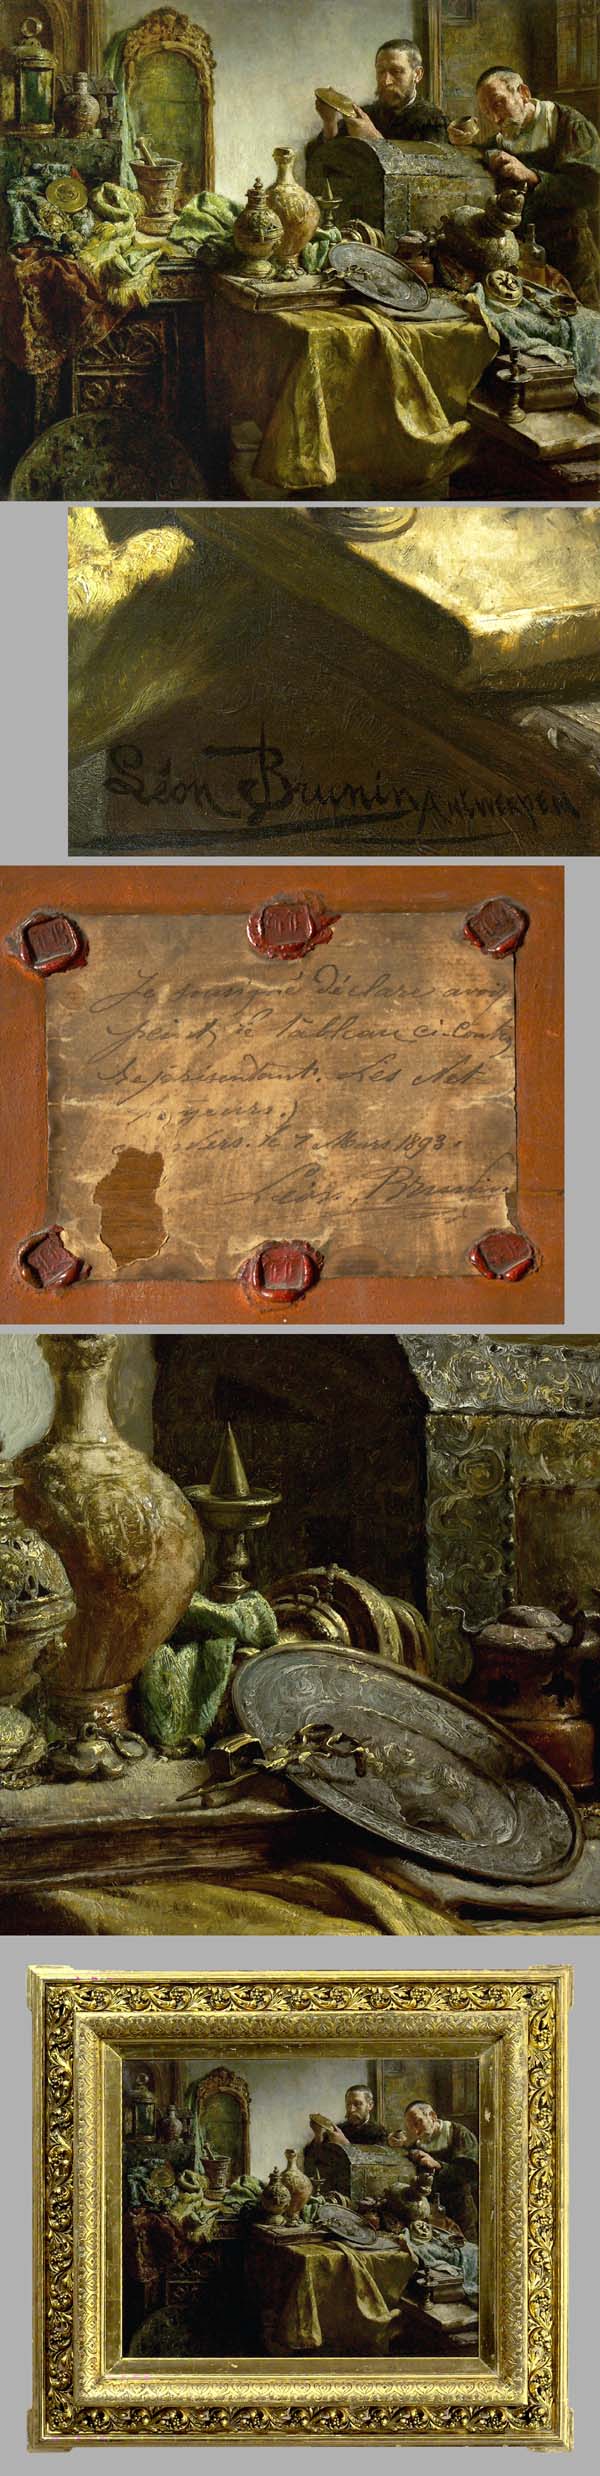 Léon Brunin Antwerpen
Je sousigné déclare avoir
peint ce tableau ci-contre
Représentant. Les Net-
toyeurs.)
le 7 Mars 1893.
Léon Brunin